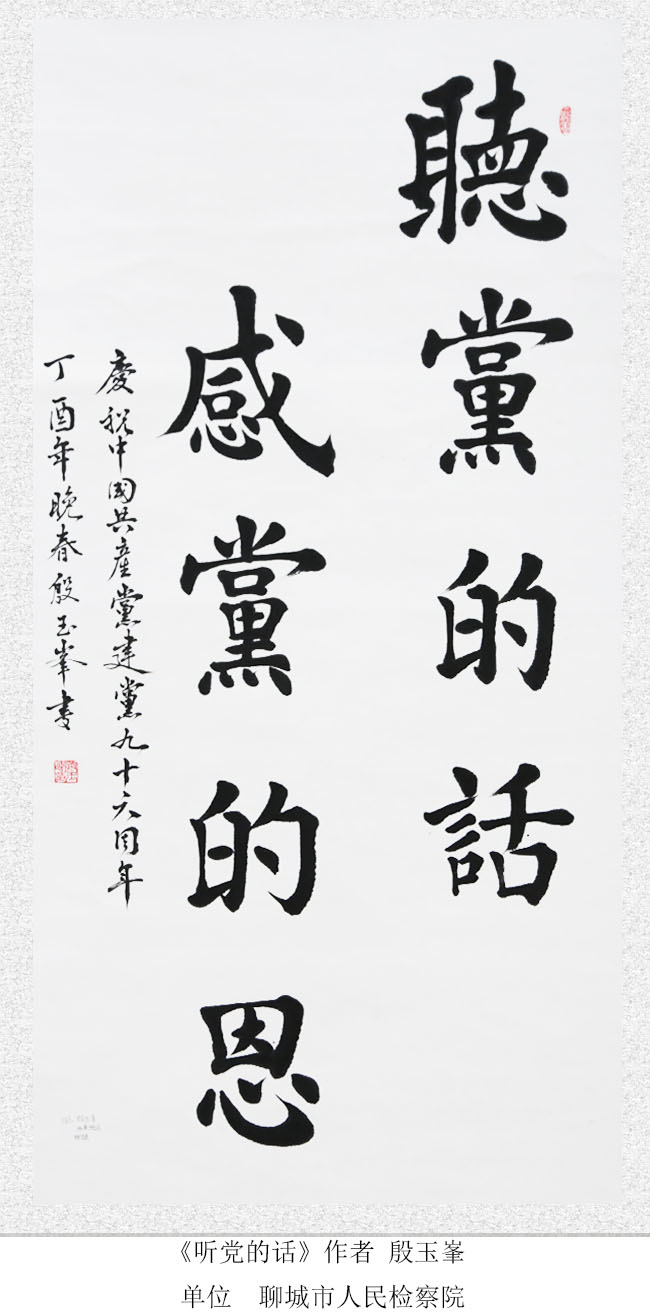 聽黨的話
感黨的恩
慶祝中國共產黨建黨九十六周年
丁酉年晚春殷玉峯書
《听党的话》作者 殷玉峯
单位 聊城市人民检察院